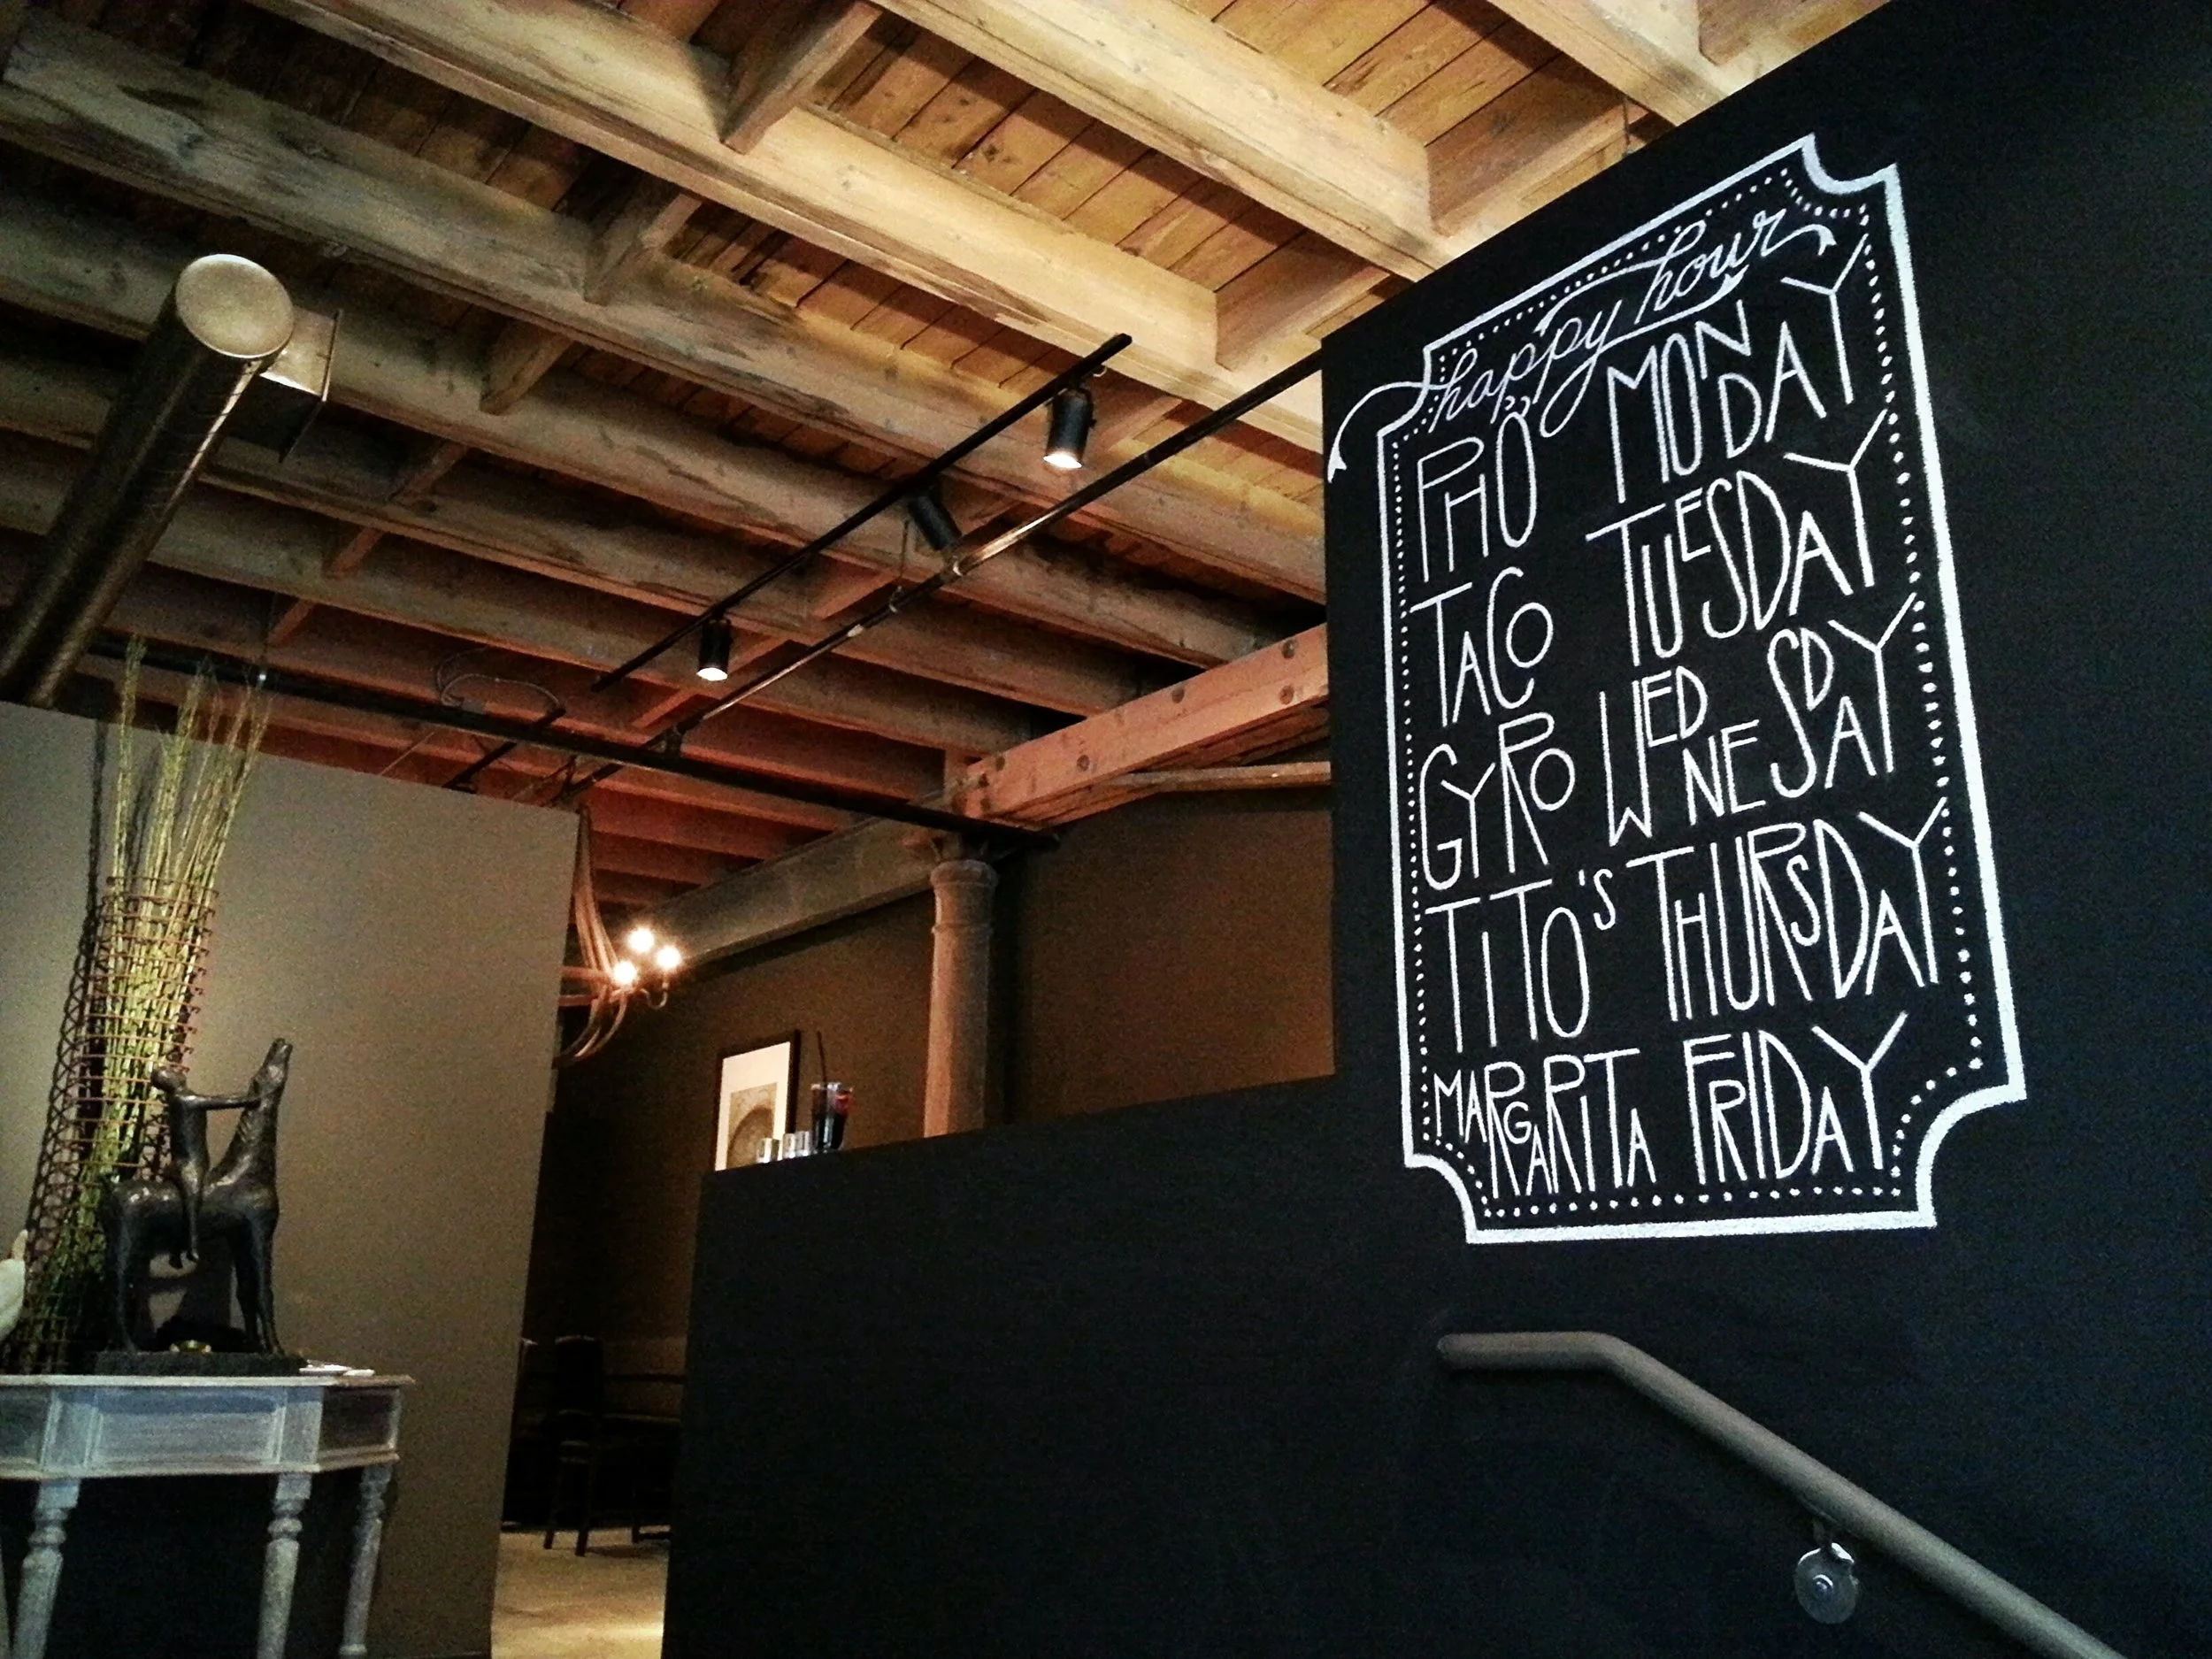 happy hour
PHO MONDAY
TACO TUESDAY
GYRO WEDNESDAY
TITO'S THURSDAY
MARGARITA FRIDAY